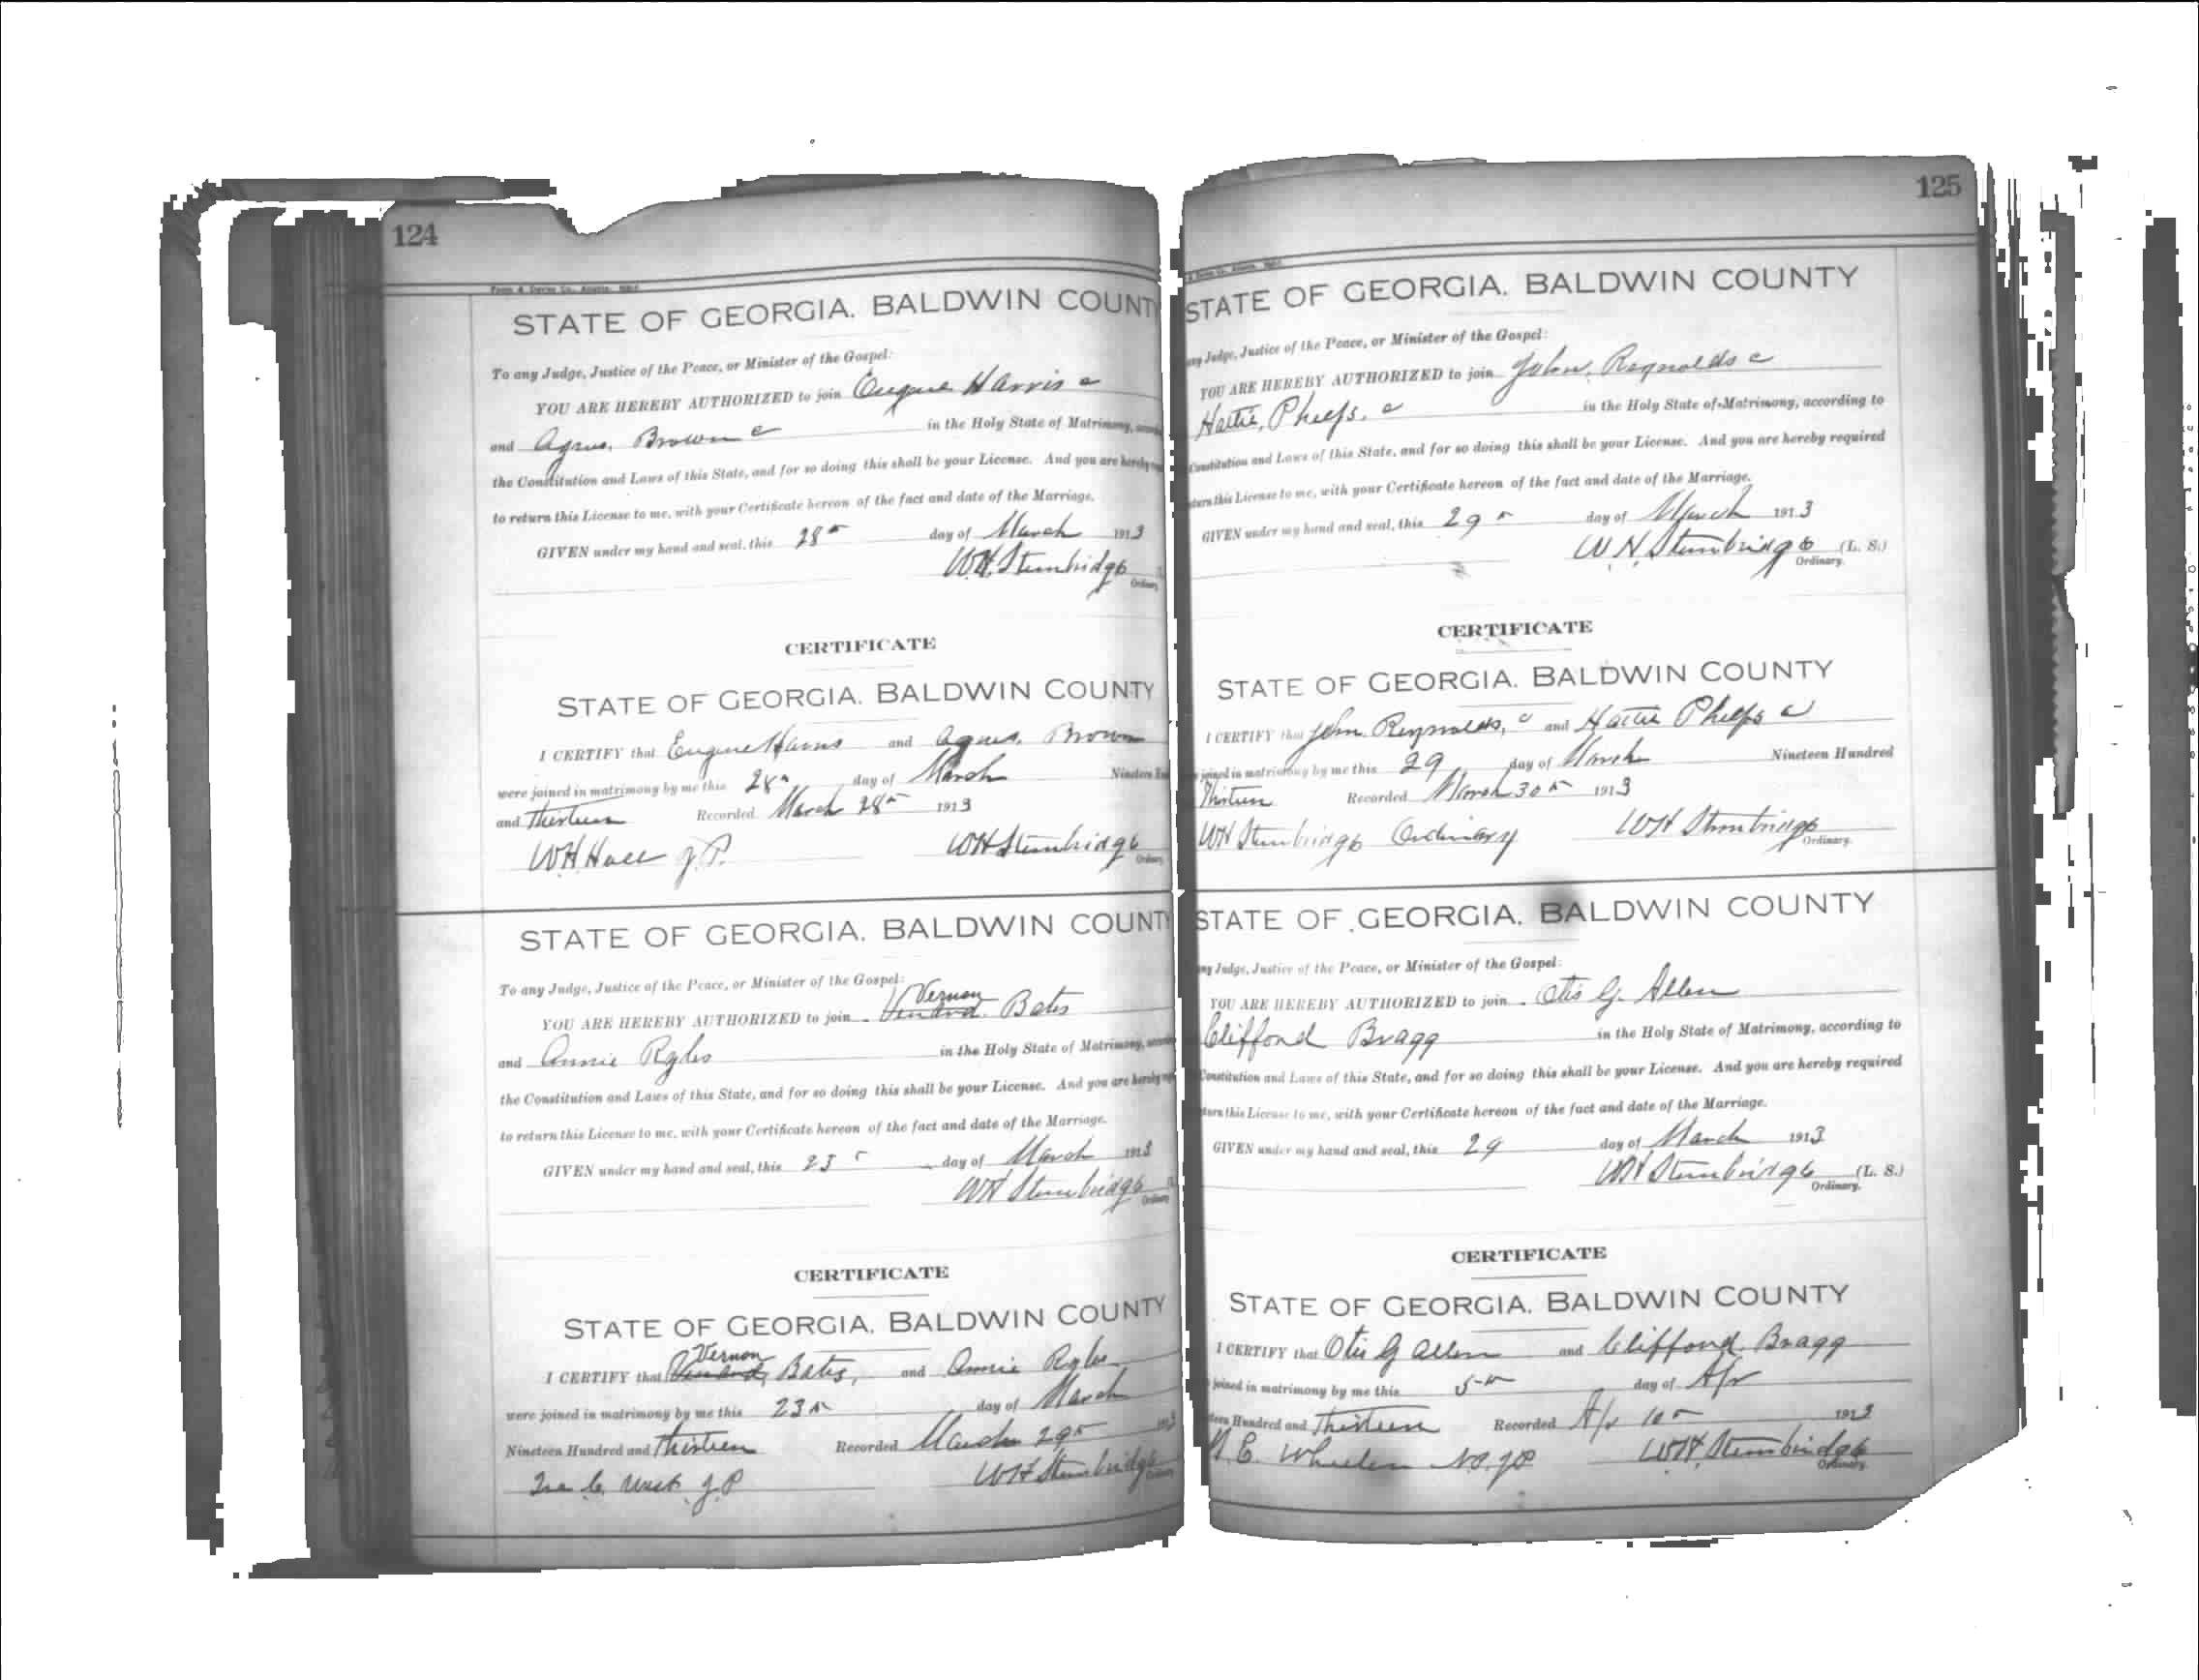 124
STATE OF GEORGIA. BALDWIN COUNT
To any Judge, Justice of the Peace, or Minister of the Gospel:
YOU ARE HEREBY AUTHORIZED to join Eugene Harris c
and Agnes. Brown c in the Holy State of Matrimony,
the Constitution and Laws of this State, and for so doing this shall be your License. And you are hereby
to return this License to me, with your Certificate hereon of the fact and date of the Marriage.
GIVEN under my hand and seal, this 28th day of March 1913
W.H. Stembridge
Ordinary
CERTIFICATE
STATE OF GEORGIA. BALDWIN COUNTY
I CERTIFY that Eugene Harris and Agnes. Brown
were joined in matrimony by me this 28th day of March Nineteen
and Thirteen Recorded March 28th 1913
W.H. Hall J.P. WH Stembridge
Ordinary
STATE OF GEORGIA. BALDWIN COUNT
To any Judge, Justice of the Peace, or Minister of the Gospel:
Vernon
YOU ARE HEREBY AUTHORIZED to join Bates
and Annie Ryles in the Holy State of Matrimony,
the Constitution and Laws of this State, and for so doing this shall be your License. And you are hereby
to return this License to me, with your Certificate hereon of the fact and date of the Marriage.
GIVEN under my hand and seal, this 23 day of March 1913
WH Stembridge
Ordinary
CERTIFICATE
STATE OF GEORGIA. BALDWIN COUNTY
Vernon
I CERTIFY that Bates, and Annie Ryles
were joined in matrimony by me this 23th day of March
Nineteen Hundred and Thirteen Recorded March 29th 1913
Ira C. West J.P WH Stembridge
Ordinary
125
STATE OF GEORGIA. BALDWIN COUNTY
any Judge, Justice of the Peace, or Minister of the Gospel:
YOU ARE HEREBY AUTHORIZED to join John. Reynolds c
Hattie, Phelps. c in the Holy State of Matrimony, according to
Constitution and Laws of this State, and for so doing this shall be your License. And you are hereby required
return this License to me, with your Certificate hereon of the fact and date of the Marriage.
GIVEN under my hand and seal, this 29th day of March 1913
W.H. Stembridge (L. S.)
Ordinary.
CERTIFICATE
STATE OF GEORGIA. BALDWIN COUNTY
I CERTIFY that John Reynolds, c and Hattie Phelps c
joined in matrimony by me this 29 day of March Nineteen Hundred
Thirteen Recorded March 30th 1913
WH Stembridge Ordinary WH Stembridge
Ordinary.
STATE OF GEORGIA. BALDWIN COUNTY
any Judge, Justice of the Peace, or Minister of the Gospel:
YOU ARE HEREBY AUTHORIZED to join Otis G. Allen
Clifford Bragg in the Holy State of Matrimony, according to
Constitution and Laws of this State, and for so doing this shall be your License. And you are hereby required
return this License to me, with your Certificate hereon of the fact and date of the Marriage.
GIVEN under my hand and seal, this 29 day of March 1913
WH Stembridge (L. S.)
Ordinary.
CERTIFICATE
STATE OF GEORGIA. BALDWIN COUNTY
I CERTIFY that Otis G Allen and Clifford. Bragg
joined in matrimony by me this 5th day of Apr
teen Hundred and Thirteen Recorded Apr 10th 1913
E. Wheelen WH. Stembridge
Ordinary